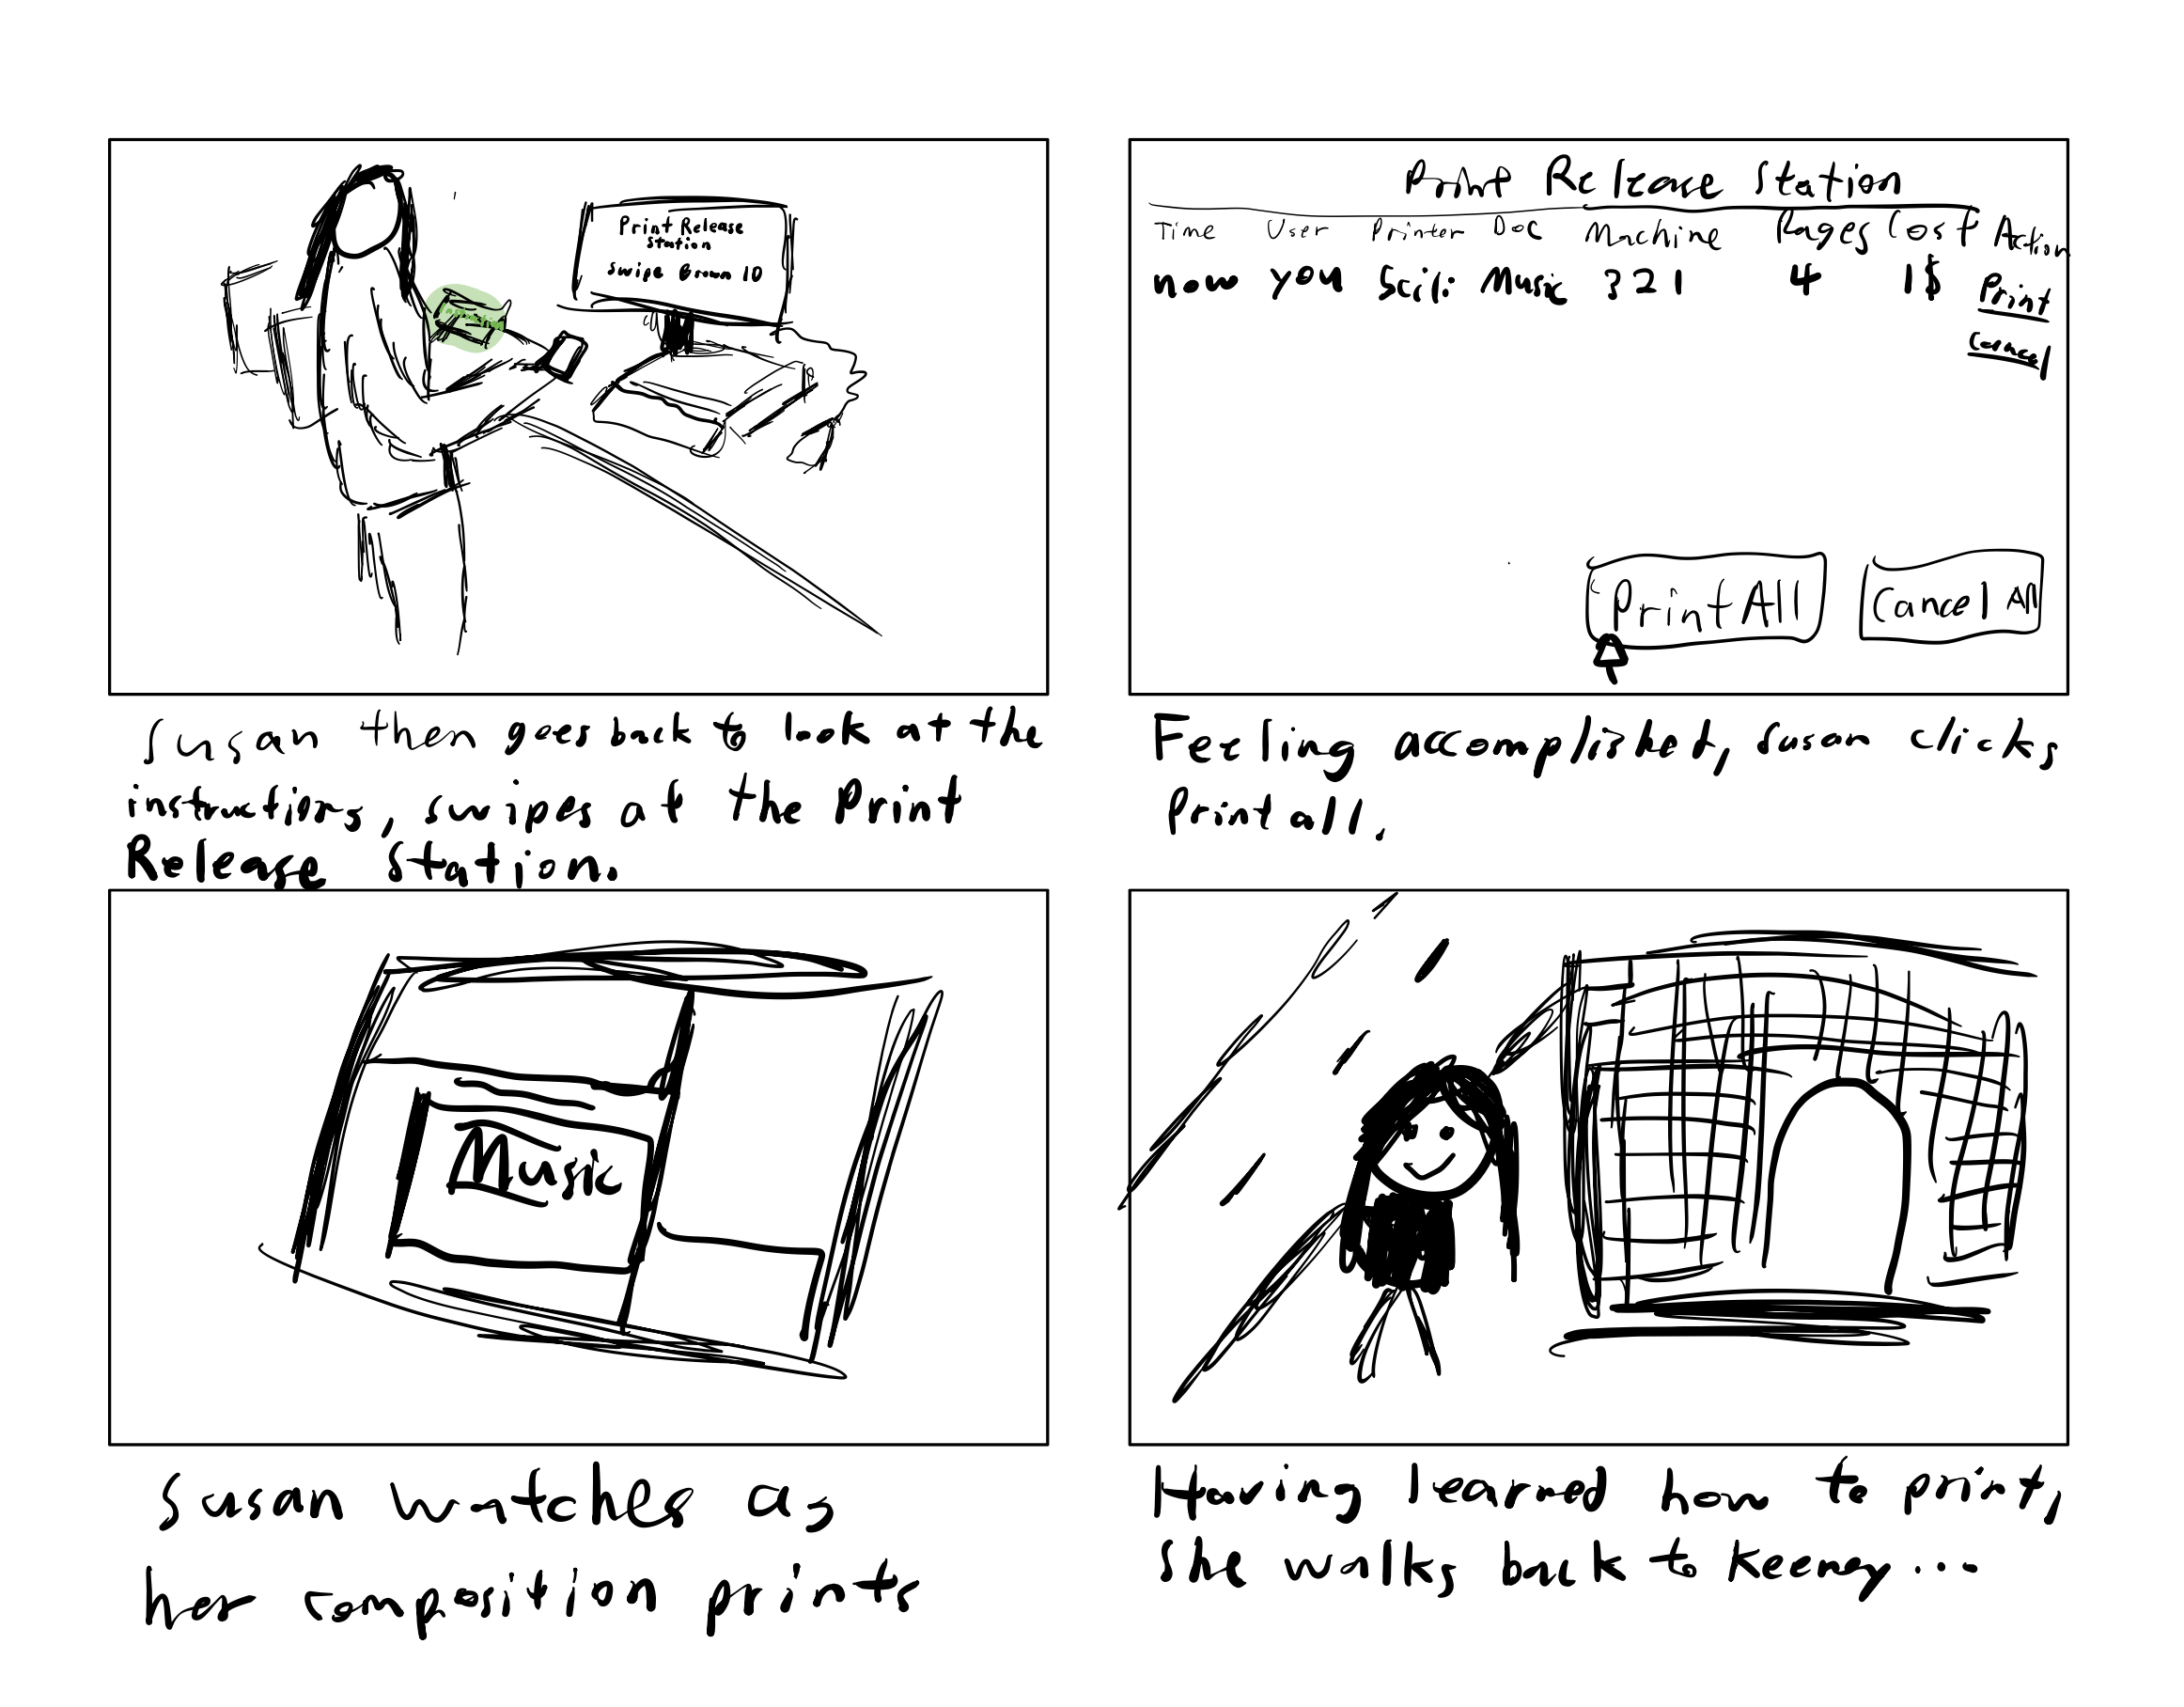 Print Release
Station
Swipe Brown ID
Susan then goes back to look at the
instructions, swipes at the Print
Release Station.
Print Release Station
Time User Printer Doc Machine Pages Cost Action
now you Scili: Music 321 4 1$ Print
Cancel
Print All Cancel All
Feeling accomplished, Susan clicks
Print all.
Music
Susan watches as
her composition prints
Having learned how to print,
She walks back to Keeney...